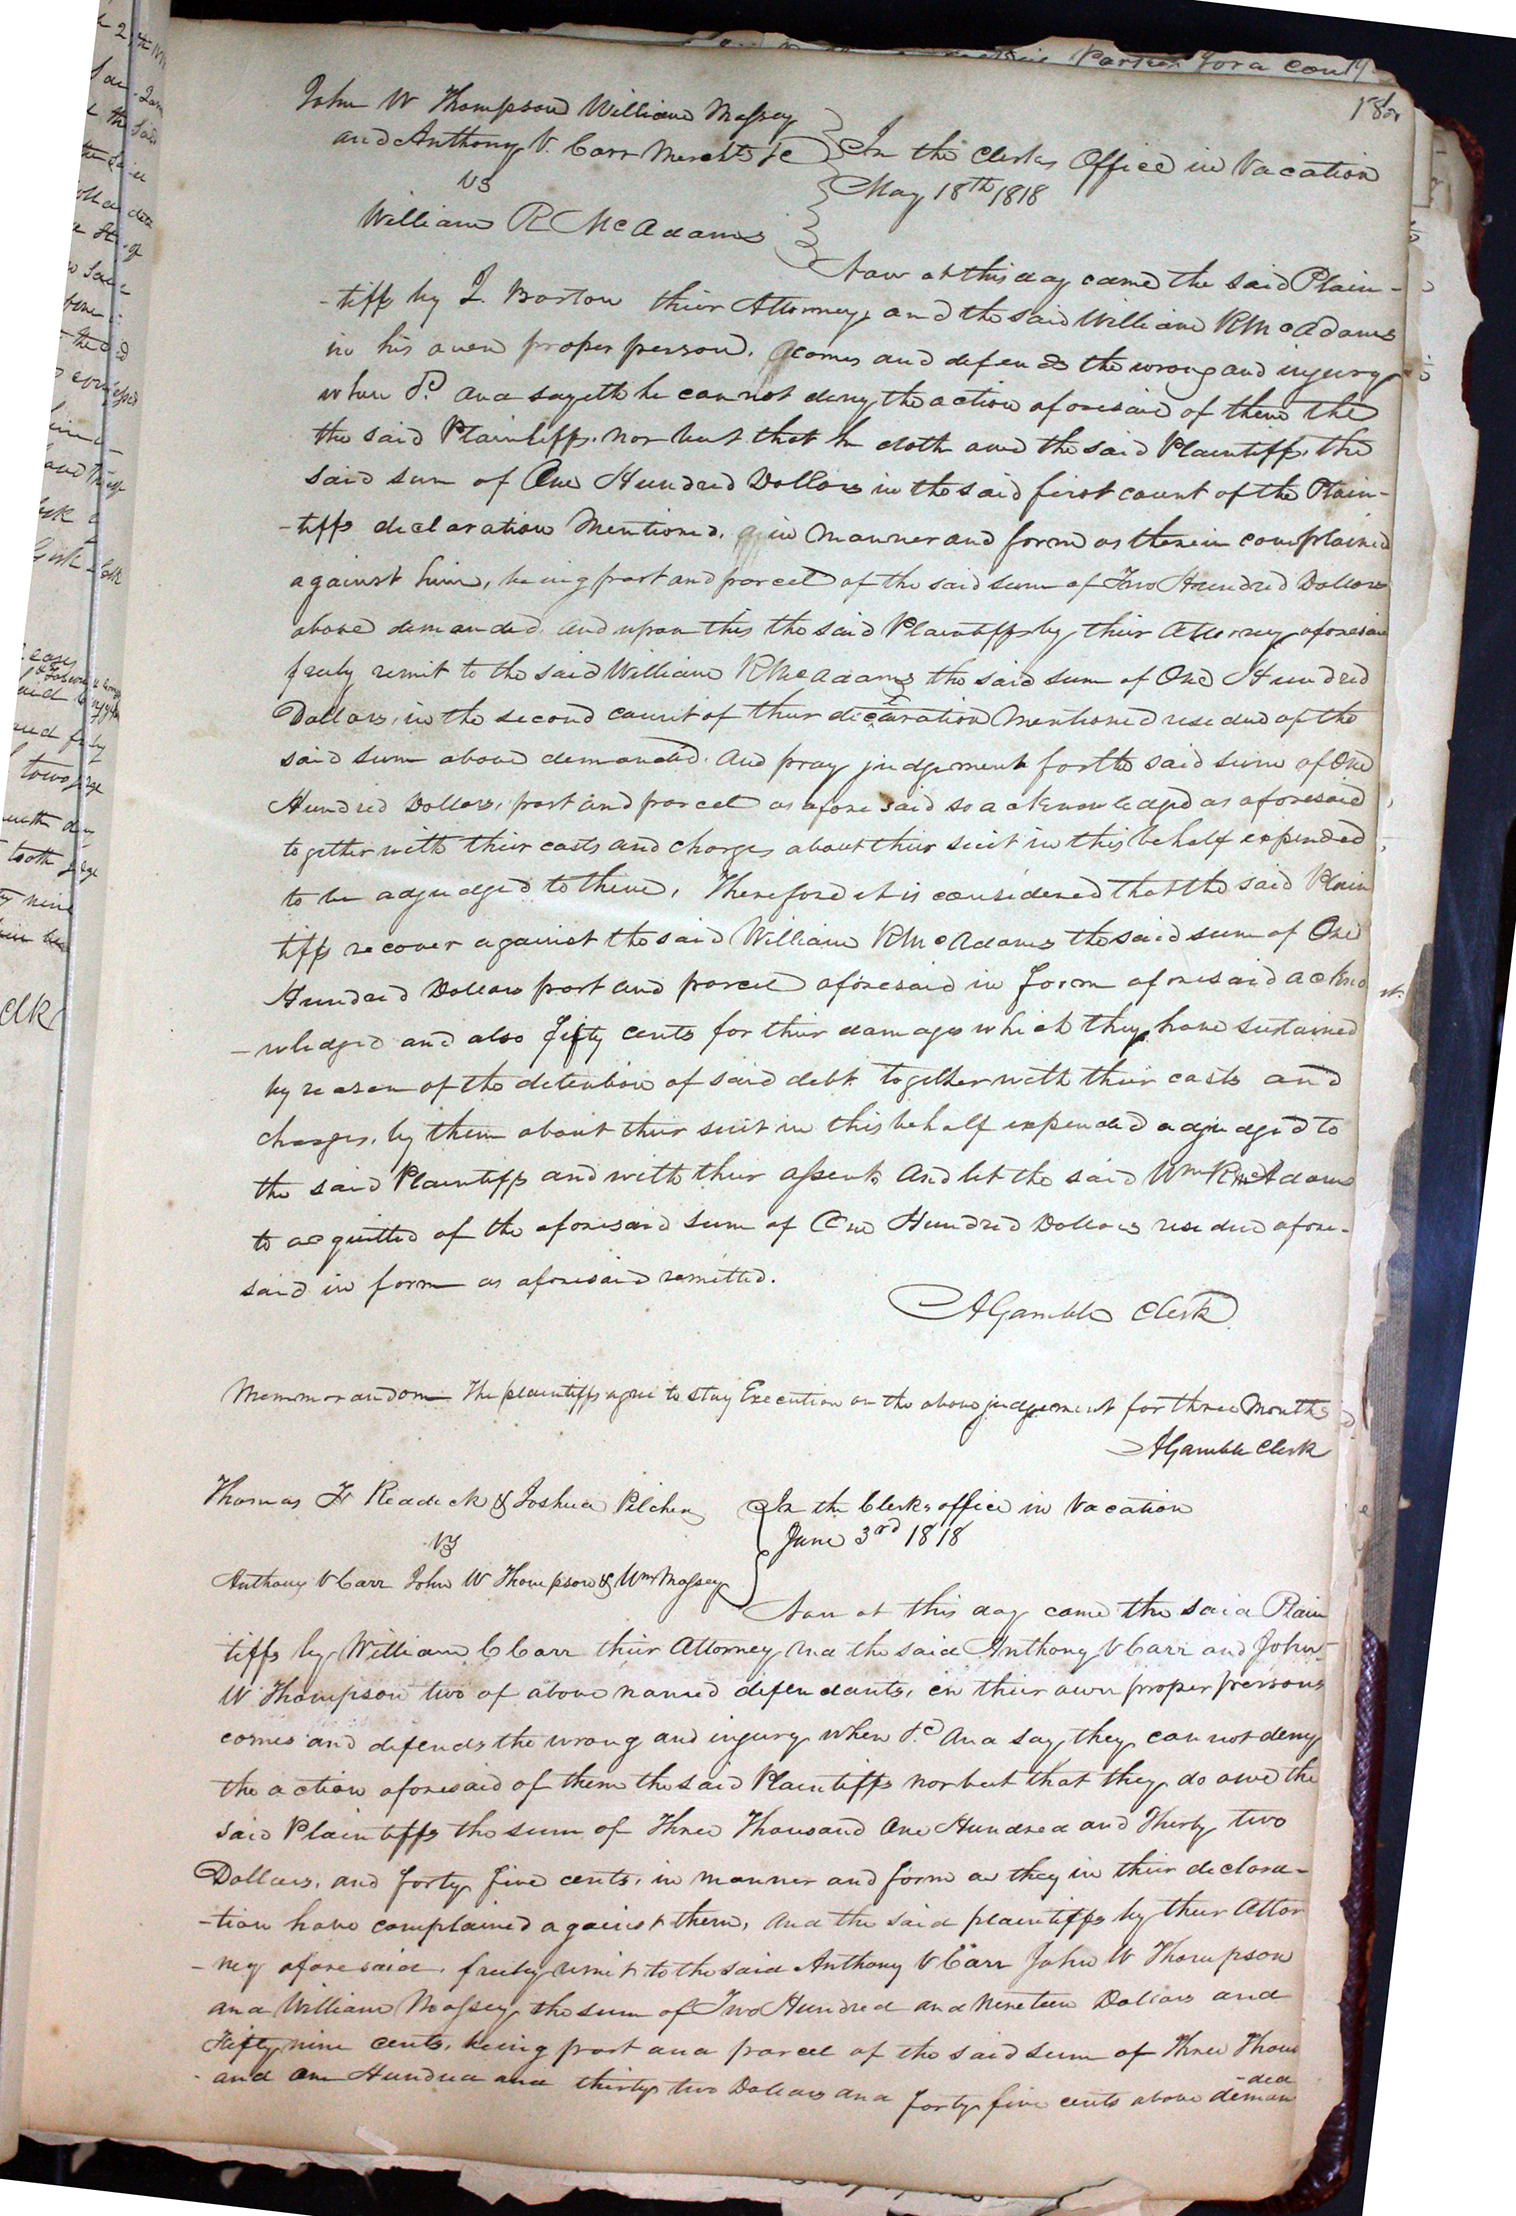 Parties for a cont
180
John W Thompson William Massey
and Anthony V. Carr Merchts &c
vs
William R McAdams
In the Clerks Office in Vacation
May 18th 1818
Now at this day came the said Plain-
-tiffs by J. Barton their Attorney, and the said William R McAdams
in his own proper person, comes and defends the wrong and injury
when &c. and sayeth he can not deny the action aforesaid of them the
the said Plaintiffs, nor but that he doth owe the said Plaintiffs, the
said sum of One Hundred Dollars in the said first count of the Plain-
-tiffs declaration Mentioned, in manner and form as therein complained
against him, being part and parcel of the said sum of Two Hundred Dollars
above demanded, and upon this the said Plaintiffs by their Attorney aforesaid
freely remit to the said William R McAdams the said sum of One Hundred
Dollars, in the second count of their declaration Mentioned resedue of the
said sum above demanded. And pray judgement for the said sum of One
Hundred Dollars, part and parcel as afore said so acknowledged as aforesaid
together with their costs and charges about their suit in this behalf expended
to be adjudged to them, Therefore it is considered that the said Plain
tiffs recover against the said William R McAdams the said sum of One
Hundred Dollars part and parcel aforesaid in form aforesaid ackno
-wledged and also fifty cents for their damages which they have sustained
by reason of the detention of said debt together with their costs and
charges, by them about their suit in this behalf expended adjudged to
the said Plaintiffs and with their assent. And let the said Wm R McAdams
to acquitted of the aforesaid sum of One Hundred Dollars resedue afore-
said in form as aforesaid remitted.
A Gamble Clerk
Memmorandom The plaintiffs agree to stay Execution on the above judgement for three Months
A Gamble Clerk
Thomas F Reddick & Joshua Pilcher
vs
Anthony V Carr John W Thompson & Wm Massey
In the Clerks office in Vacation
June 3rd 1818
Now at this day came the said Plain
tiffs by William C Carr their Attorney and the said Anthony V Carr and John
W Thompson two of above named defendants, in their own proper persons
comes and defends the wrong and injury when &c. And say they can not deny
the action aforesaid of them the said Plaintiffs nor but that they do owe the
said Plaintiffs the sum of Three Thousand One Hundred and Thirty two
Dollars, and forty five cents, in manner and form as they in their declara-
-tion have complained against them, And the said plaintiffs by their Attor
-ney afore said, freely remit to the said Anthony V Carr John W Thompson
and William Massey, the sum of Two Hundred and Nineteen Dollars and
Fifty nine cents, being part and parcel of the said sum of Three Thous
and One Hundred and thirty two Dollars and forty five cents above deman
-ded